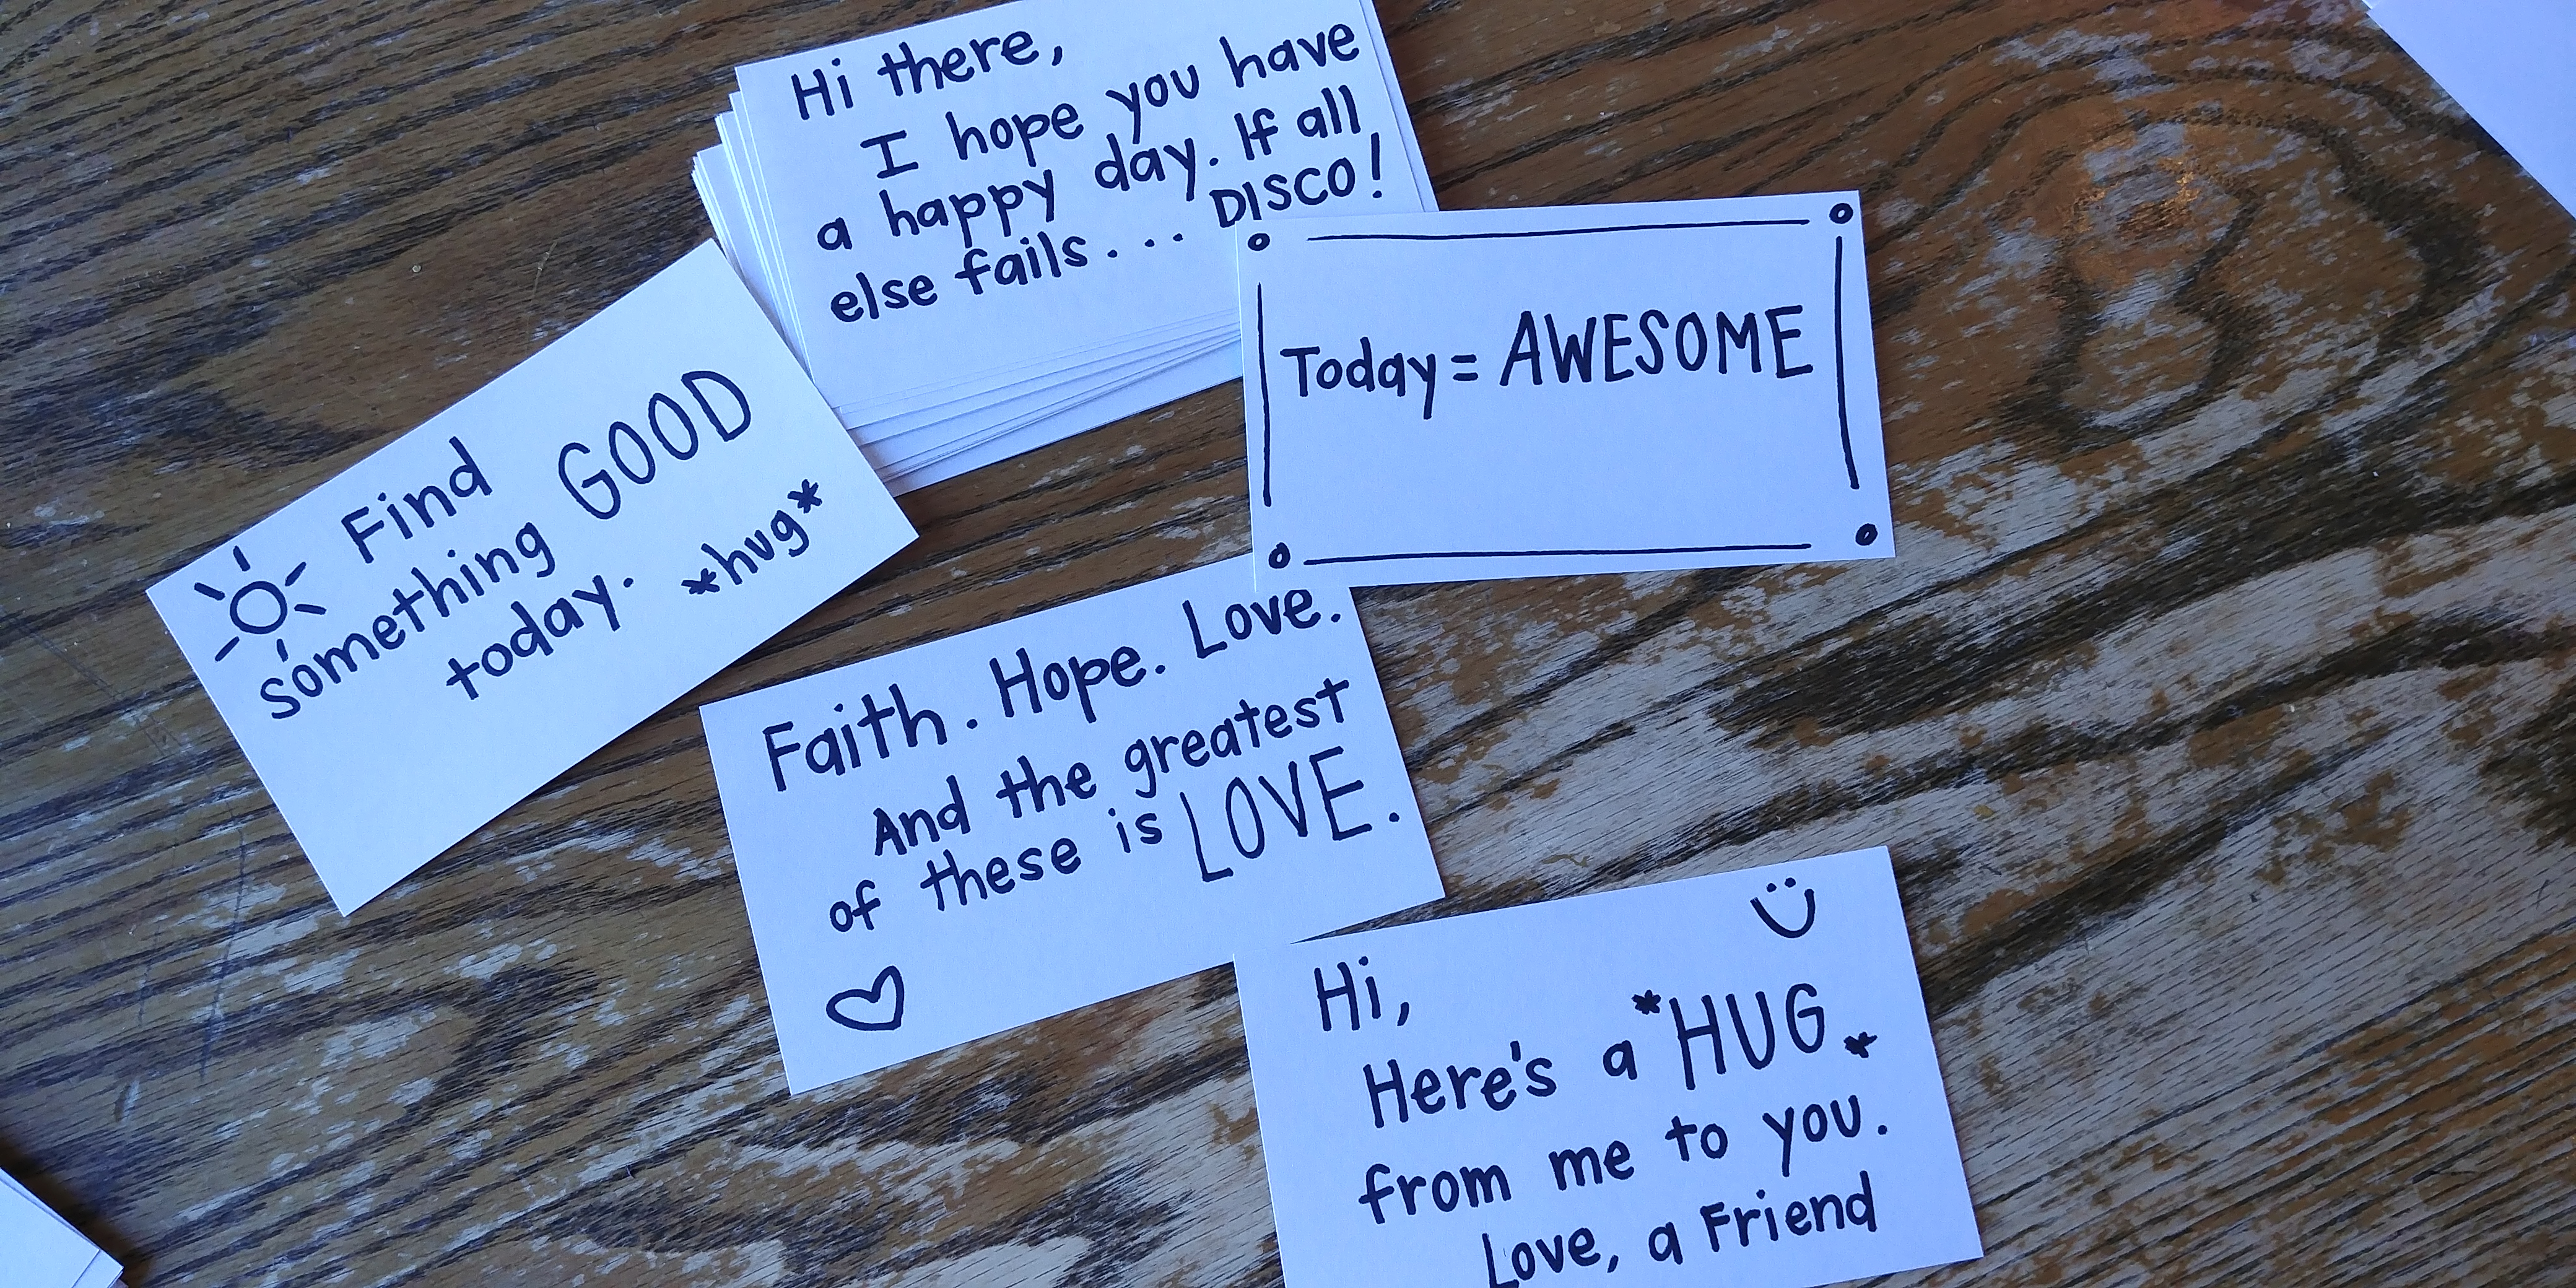 Hi there,
I hope you have
a happy day. If all
else fails... DISCO!
Today = AWESOME
Find
something GOOD
today. *hug*
Faith. Hope. Love.
And the greatest
of these is LOVE.
Hi,
Here's a *HUG*
from me to you.
Love, a Friend